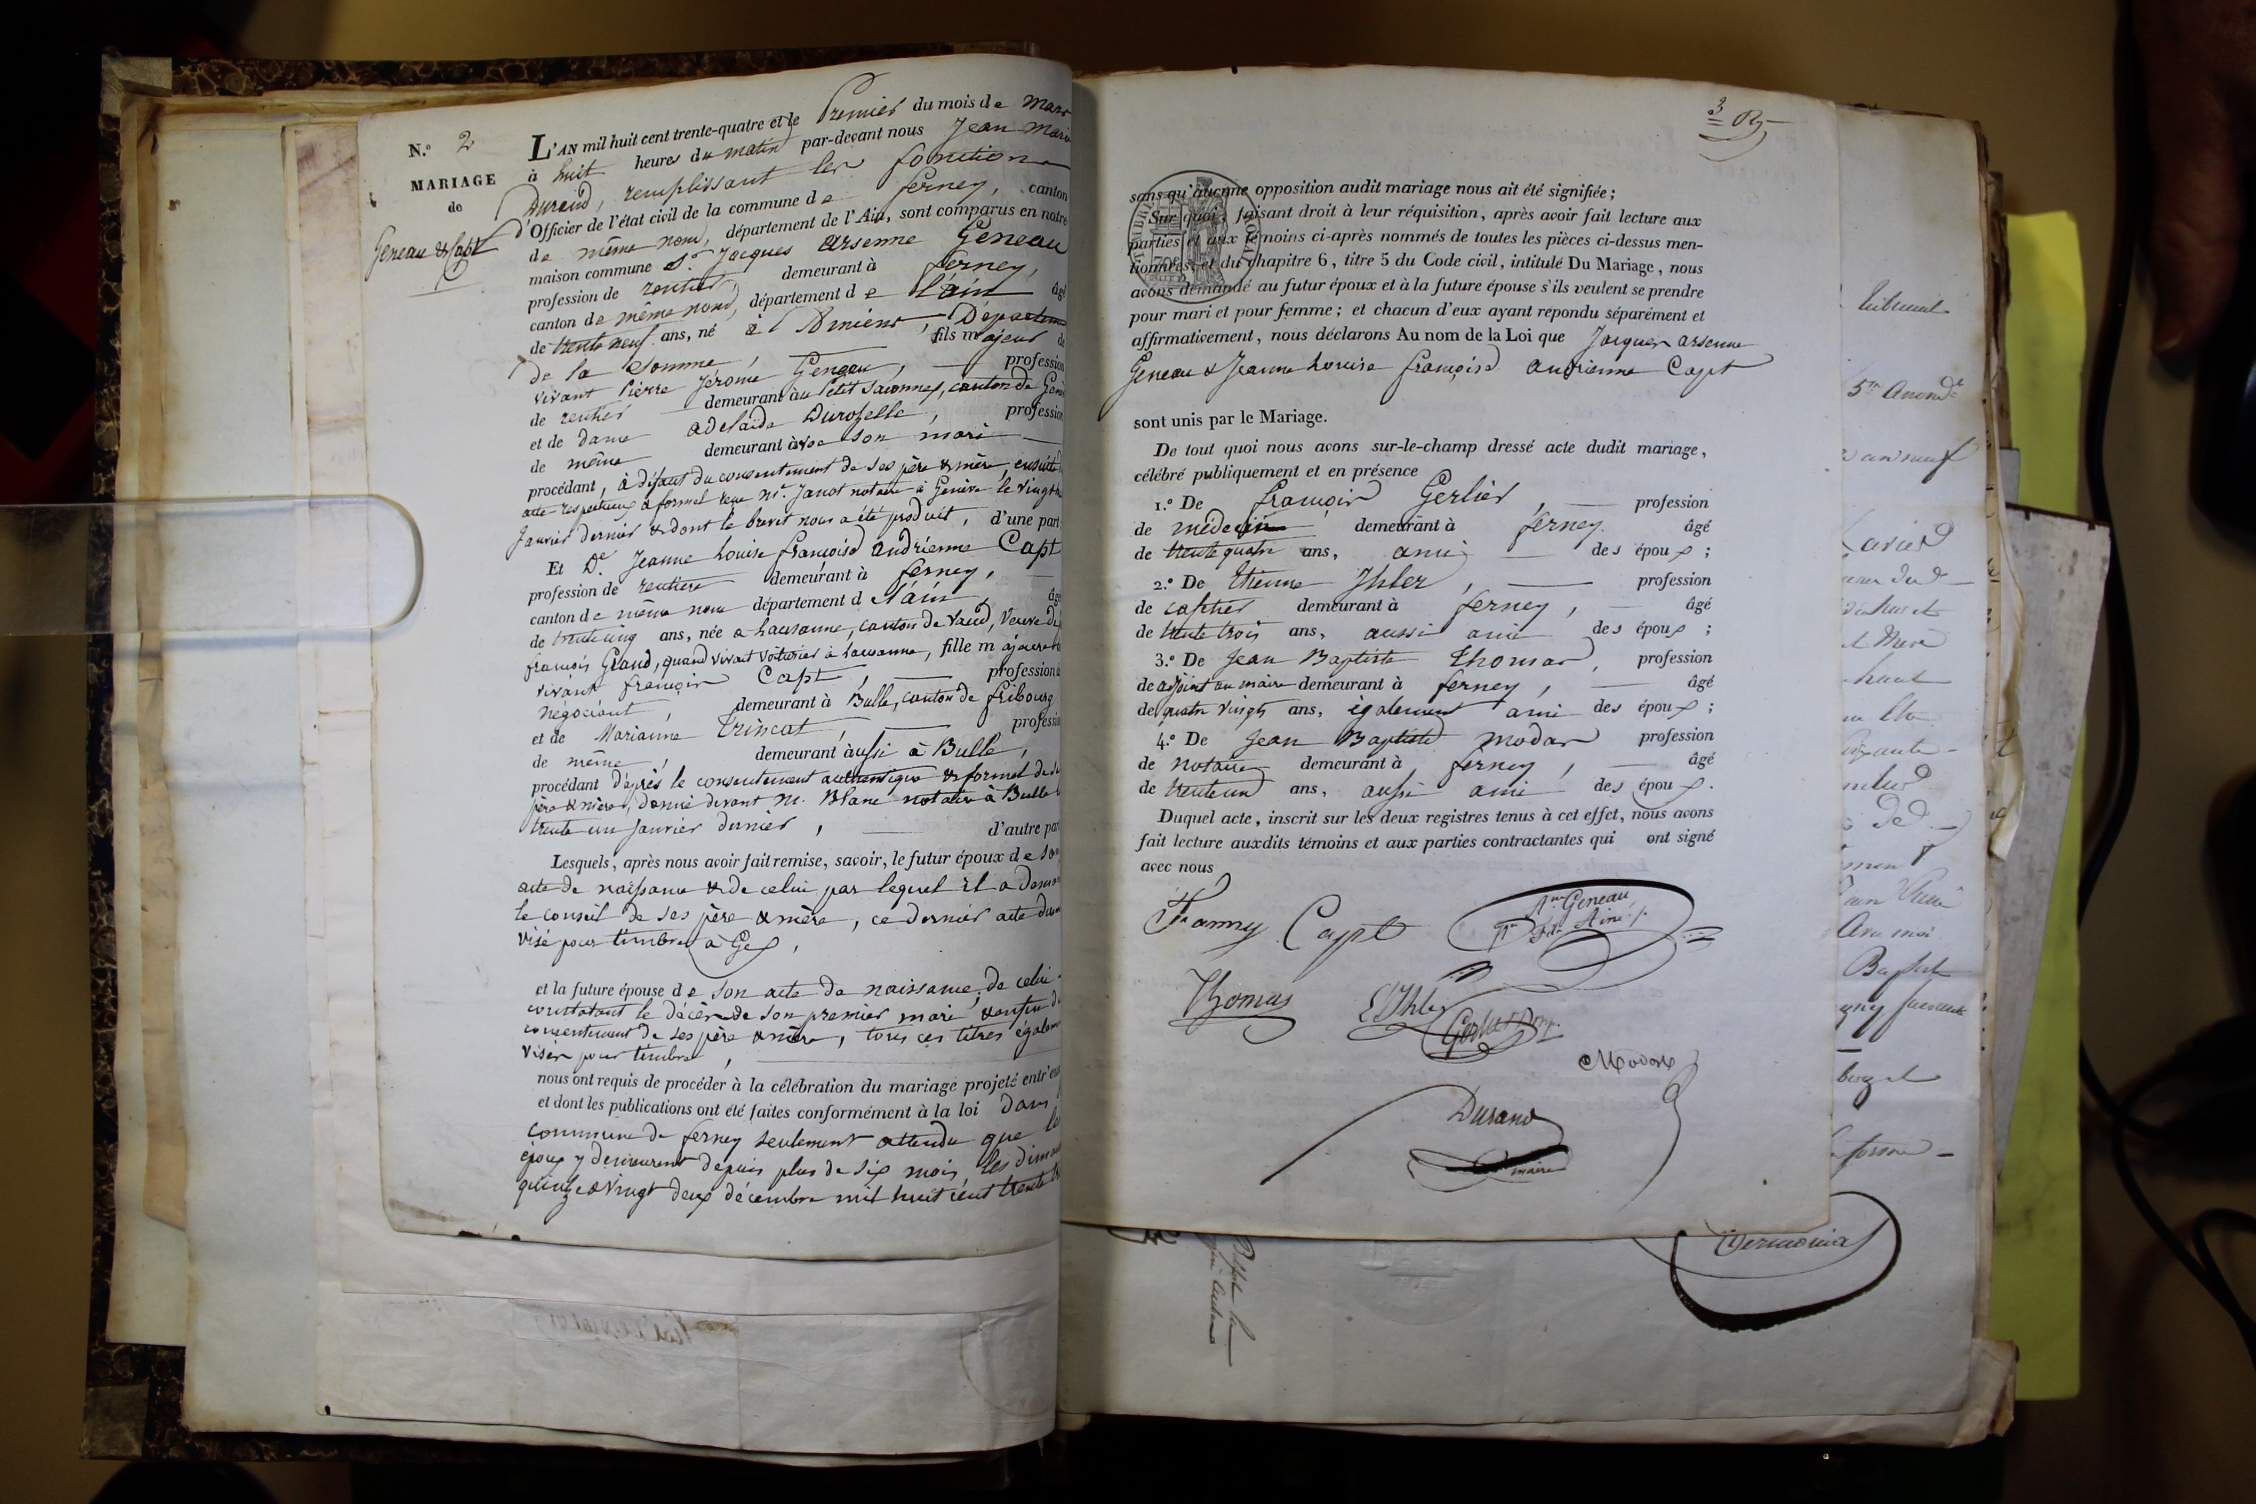 N.o 2
MARIAGE
de
Geneau & Capt
L'AN mil huit cent trente-quatre et le Premier du mois de Mars
à huit heures du matin par-devant nous Jean Marie
Durand, remplissant les fonctions
d'Officier de l'état civil de la commune de ferney, canton
de même nom, département de l'Ain, sont comparus en notre
maison commune Sr Jacques Arsenne Geneau
profession de rentier, demeurant à ferney,
canton de même nom, département de l'ain âgé
de trente neuf ans, né à Amiens, Département
de la Somme, fils majeur de
vivant Pierre Jérome Geneau, profession
de rentier demeurant au Petit Saconnex, canton de Genève
et de dame adelaïde Duroselle, profession
de même demeurant avec son mari
procédant, à défaut du consentement de ses père & mère, ensuite
acte respectueux & formel reçu Mr. Janot notaire à Genève le vingt
Janvier dernier & dont le brevet nous a été produit, d'une part
Et De. Jeanne Louise françoise andrienne Capt
profession de rentière demeurant à ferney,
canton de même nom département de l'ain, âgée
de trente cinq ans, née à Lausanne, canton de Vaud, Veuve de
françois Grand, quand vivait voiturier à Lausanne, fille majeure de
vivant françois Capt, profession de
négociant, demeurant à Bulle, canton de fribourg
et de Marianne Trincat, profession
de même, demeurant aussi à Bulle,
procédant d'après le consentement authentique & formel de ses
père & mère, donné devant M. Blanc notaire à Bulle le
trente un Janvier dernier, d'autre part
Lesquels, après nous avoir fait remise, savoir, le futur époux de son
acte de naissance & de celui par lequel il a demandé
le conseil de ses père & mère, ce dernier acte dument
visé pour timbre à Gex,
et la future épouse de son acte de naissance, de celui
constatant le décès de son premier mari & enfin du
consentement de ses père & mère, tous ces titres également
visés pour timbre,
nous ont requis de procéder à la célébration du mariage projeté entr'eux
et dont les publications ont été faites conformément à la loi dans la
commune de ferney seulement attendu que les
époux y demeurent depuis plus de six mois, les dimanches
quinze & vingt deux décembre mil huit cent trente trois
3
sans qu'aucune opposition audit mariage nous ait été signifiée ;
Sur quoi, faisant droit à leur réquisition, après avoir fait lecture aux
parties et aux témoins ci-après nommés de toutes les pièces ci-dessus men-
tionnées, et du chapitre 6, titre 5 du Code civil, intitulé Du Mariage, nous
avons demandé au futur époux et à la future épouse s'ils veulent se prendre
pour mari et pour femme ; et chacun d'eux ayant répondu séparément et
affirmativement, nous déclarons Au nom de la Loi que Jacques arsenne
Geneau & Jeanne Louise françoise andrienne Capt
sont unis par le Mariage.
De tout quoi nous avons sur-le-champ dressé acte dudit mariage,
célébré publiquement et en présence
1.o De françois Gerlier, profession
de médecin demeurant à ferney. âgé
de trente quatre ans, ami des époux ;
2.o De Etienne Ihler, profession
de cafetier demeurant à ferney, âgé
de trente trois ans, aussi ami des époux ;
3.o De Jean Baptiste Thomas, profession
de adjoint au maire demeurant à ferney, âgé
de quatre vingts ans, également ami des époux ;
4.o De Jean Baptiste Modas profession
de notaire demeurant à ferney, âgé
de trente un ans, aussi ami des époux.
Duquel acte, inscrit sur les deux registres tenus à cet effet, nous avons
fait lecture auxdits témoins et aux parties contractantes qui ont signé
avec nous
Fanny Capt
Geneau
Ainé
Thomas
E Ihler
Gerlier
Durand
maire
tribunal